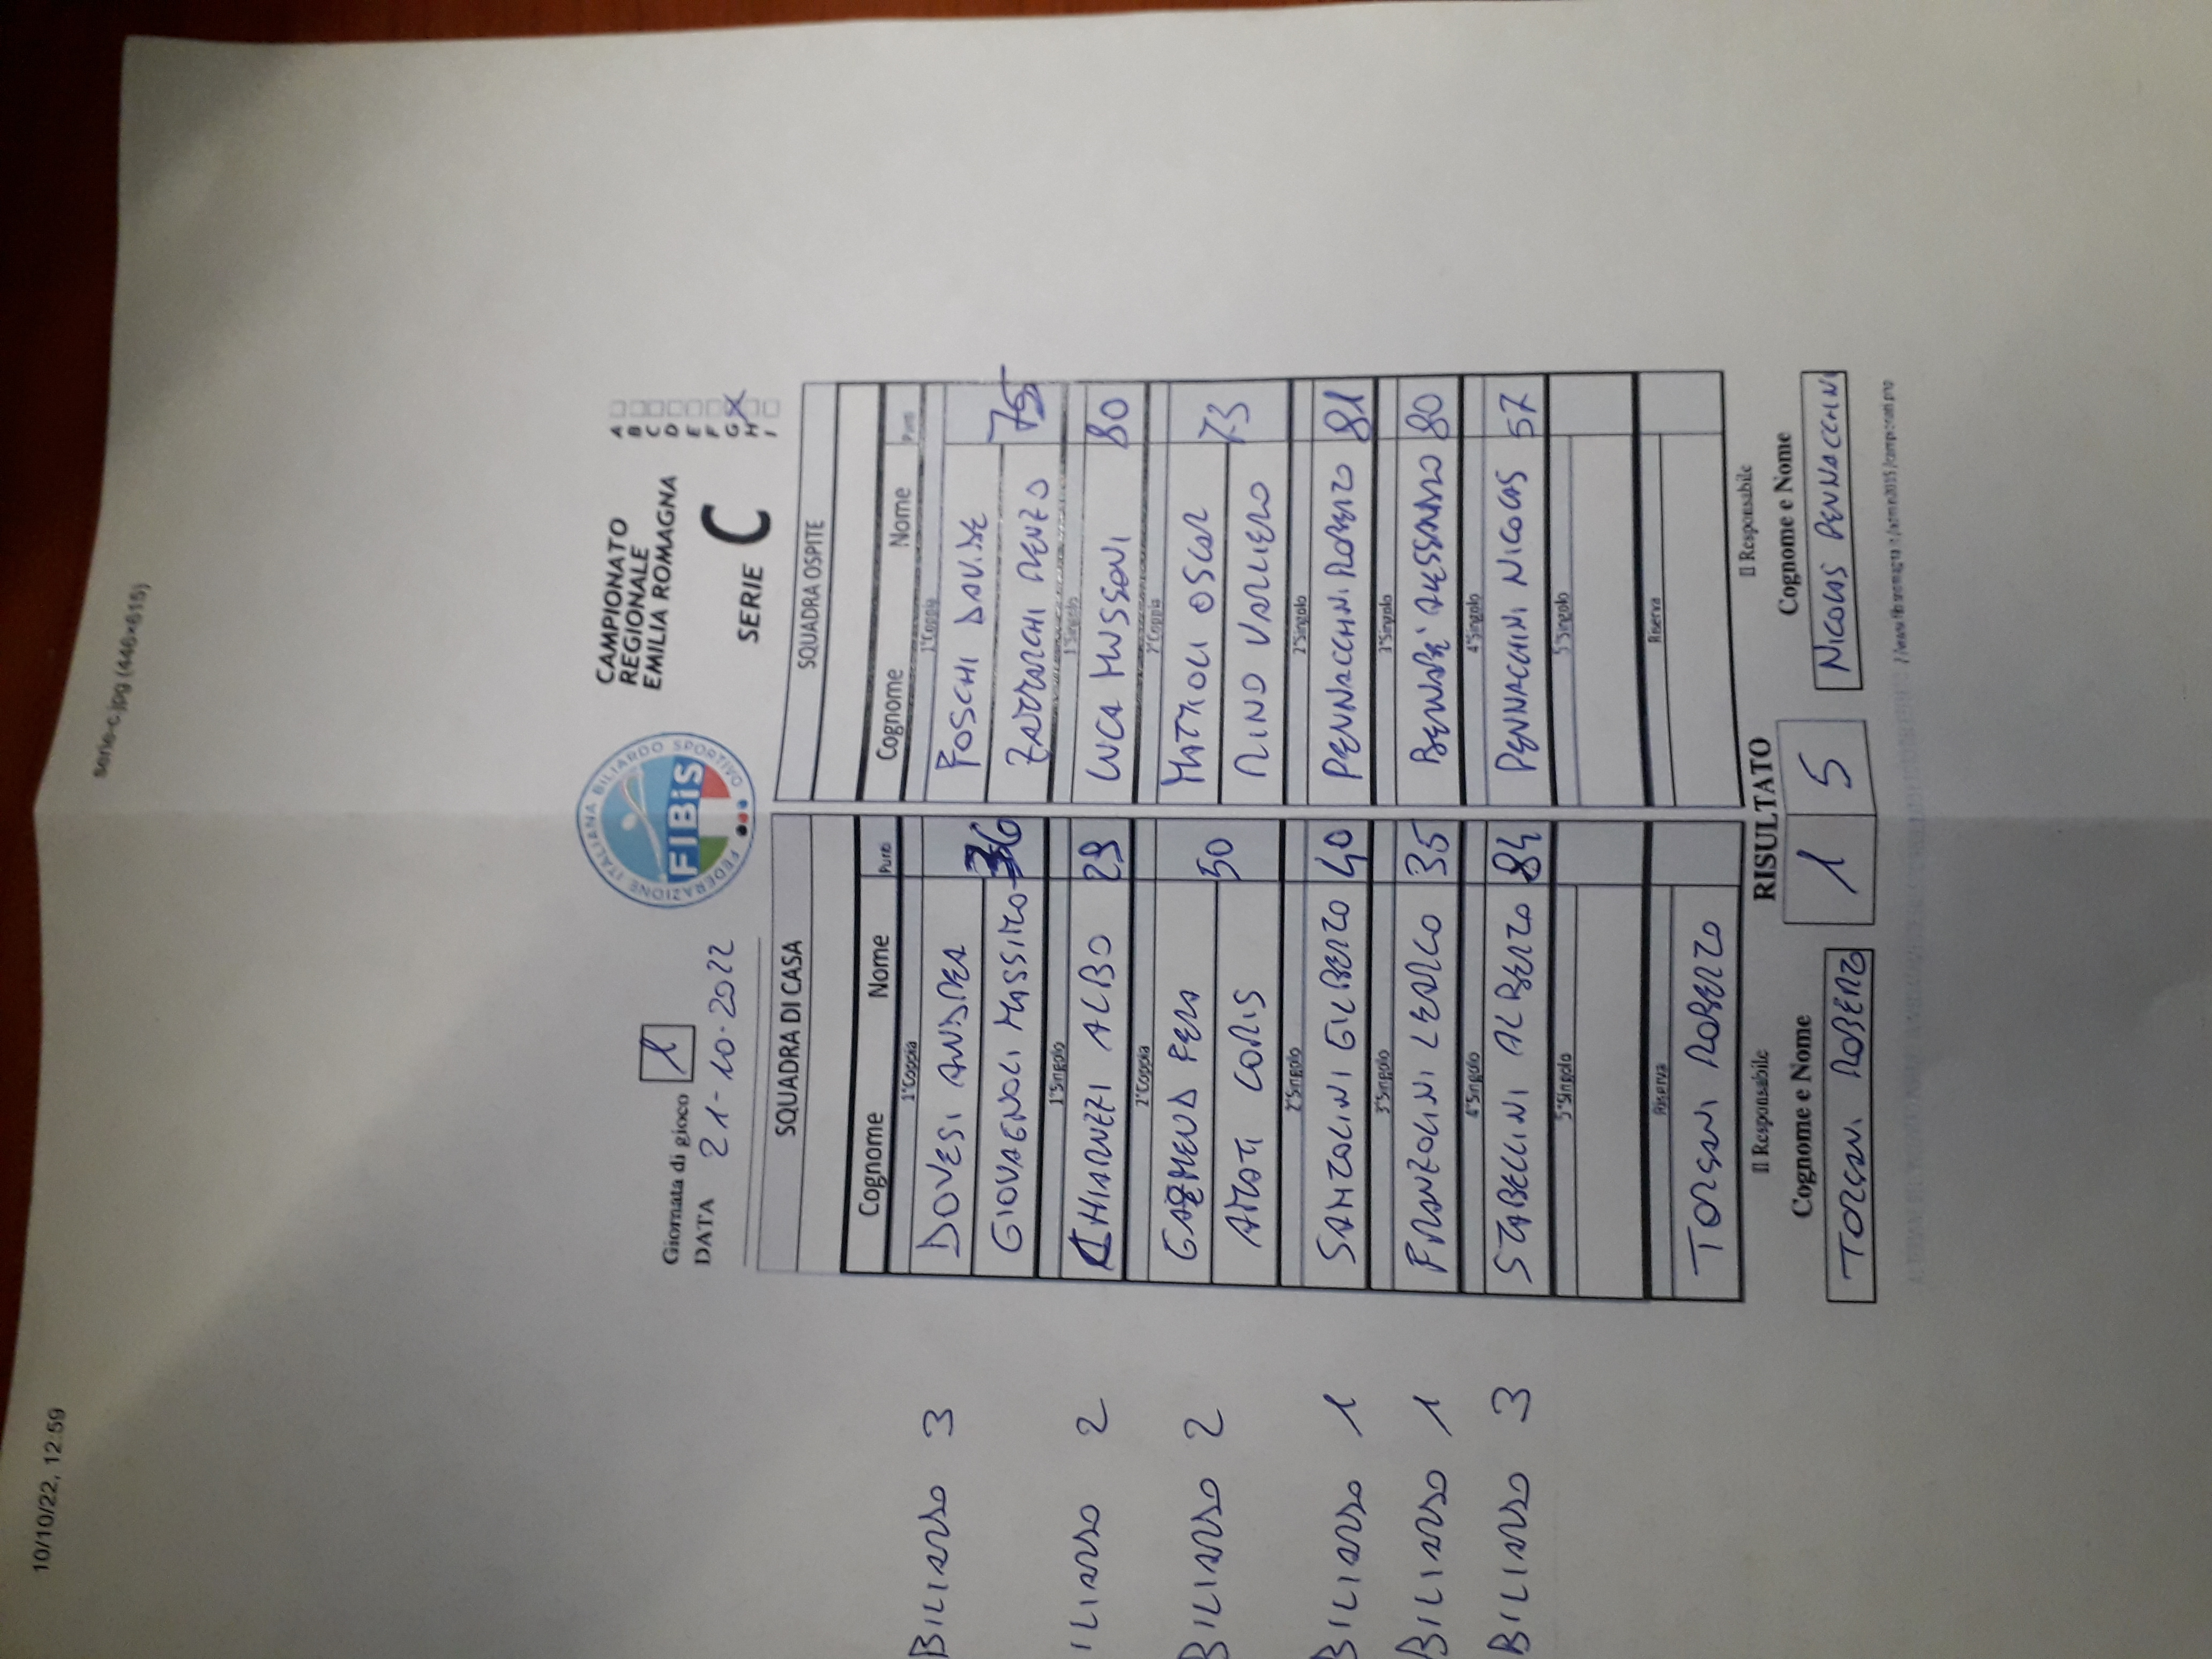 10/10/22, 12:59
serie-c.jpg (446×615)
Giornata di gioco 1
DATA 21-10-2022
FEDERAZIONE ITALIANA BILIARDO SPORTIVO
FIBiS
CAMPIONATO
REGIONALE
EMILIA ROMAGNA
SERIE C
A
B
C
D
E
F
G
H
I
SQUADRA DI CASA SQUADRA OSPITE
Cognome Nome Punti Cognome Nome Punti
1°Coppia 1°Coppia
BILIARDO 3 DOVESI ANDREA FOSCHI DAVIDE
GIOVAGNOLI MASSIMO 36 ZATTARCHI RENZO 75
1°Singolo 1°Singolo
ILIARDO 2 CHIARNEZI ALBO 29 LUCA MUSSONI 80
2°Coppia 2°Coppia
BILIARDO 2 GAZMEND PERA 50 MATTIOLI OSCAR 73
AMATI LORIS NINO VALLIERO
2°Singolo 2°Singolo
BILIARDO 1 SANTOLINI GILBERTO 40 PENNACCHINI ROBERTO 81
3°Singolo 3°Singolo
BILIARDO 1 FRANZOLINI LEARCO 35 BERNARE' ALESSANDRO 80
4°Singolo 4°Singolo
BILIARDO 3 STABELLINI ALBERTO 84 PENNACCHINI NICOLAS 57
5°Singolo 5°Singolo
Riserva Riserva
TORSANI ROBERTO
Il Responsabile RISULTATO Il Responsabile
Cognome e Nome Cognome e Nome
TORSANI ROBERTO 1 5 NICOLAS PENNACCHINI